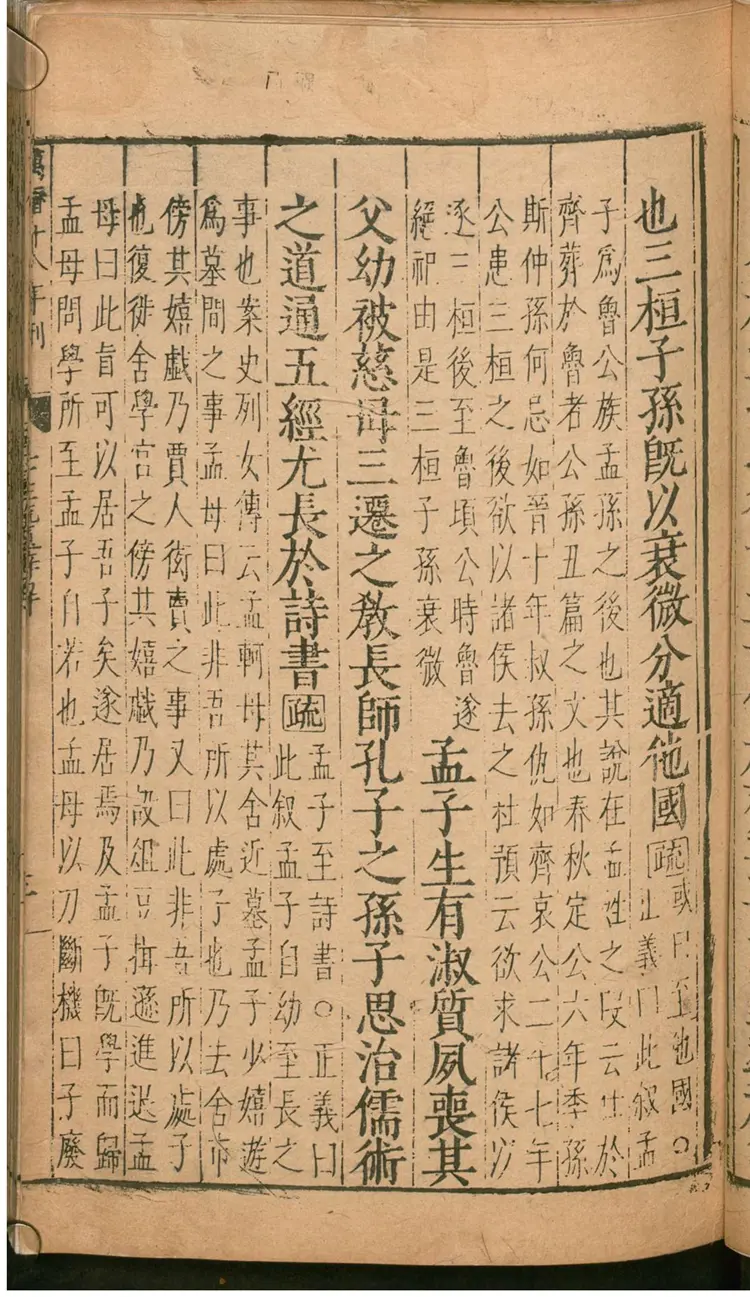 也三桓子孫旣以衰微分適他國疏或曰至他國○
正義曰此叙孟
子爲魯公族孟孫之後也其說在孟姓之段云仕於
齊葬於魯者公孫丑篇之文也春秋定公六年季孫
斯仲孫何忌如晉十年叔孫仇如齊哀公二十七年
公患三桓之後欲以諸侯去之杜預云欲求諸侯以
逐三桓後至魯頃公時魯遂
絕祀由是三桓子孫衰微
孟子生有淑質夙喪其
父幼被慈母三遷之敎長師孔子之孫子思治儒術
之道通五經尤長於詩書疏孟子至詩書○正義曰
此叙孟子自幼至長之
事也案史列女傳云孟軻母其舍近墓孟子少嬉遊
爲墓間之事孟母曰此非吾所以處子也乃去舍市
傍其嬉戲乃賈人衒賣之事又曰此非吾所以處子
也復徙舍學宮之傍其嬉戲乃設俎豆揖遜進退孟
母曰此眞可以居吾子矣遂居焉及孟子旣學而歸
孟母問學所至孟子自若也孟母以刀斷機曰子廢
萬曆十八年刊